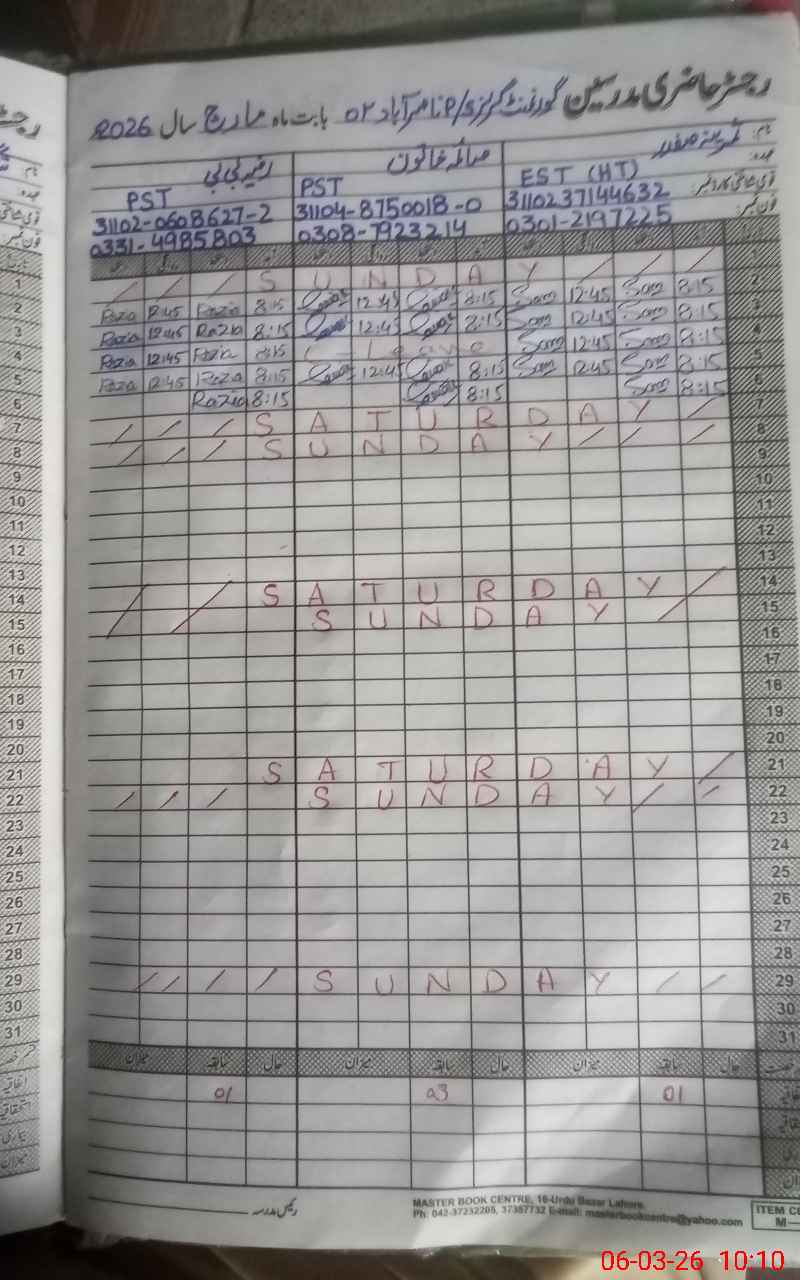 رجسٹر حاضری مدرسین گورنمنٹ گرلز P/S ناصر آباد 02 بابت ماہ مارچ سال 2026
نام:
عہدہ:
قومی شناختی کارڈ نمبر:
فون نمبر:
صائمہ خاتون رضیہ بی بی
EST (HT) PST PST
3110237144632 31104-8750018-0 31102-0608627-2
0301-2197225 0308-7923214 0331-4985803
1 / / / S U N D A Y / / / 1
2 Razia 12:45 Razia 8:15 12:45 8:15 12:45 8:15 2
3 Razia 12:45 Razia 8:15 12:45 8:15 12:45 8:15 3
4 Razia 12:45 Razia 8:15 C - Leave 12:45 8:15 4
5 Razia 12:45 Razia 8:15 12:45 8:15 12:45 8:15 5
6 Razia 8:15 8:15 8:15 6
7 / / / S A T U R D A Y / 7
8 / / / S U N D A Y / / / 8
9 9
10 10
11 11
12 12
13 13
14 / / S A T U R D A Y / 14
15 S U N D A Y 15
16 16
17 17
18 18
19 19
20 20
21 S A T U R D A Y / 21
22 / / / S U N D A Y / / 22
23 23
24 24
25 25
26 26
27 27
28 28
29 / / / / S U N D A Y / / 29
30 30
31 31
حال سابقہ میزان حال سابقہ میزان حال سابقہ میزان
01 03 01
رئیس مدرسہ
MASTER BOOK CENTRE, 16-Urdu Bazar Lahore.
Ph: 042-37232205, 37357732 E-mail: masterbookcentre@yahoo.com
ITEM C
M—
06-03-26 10:10